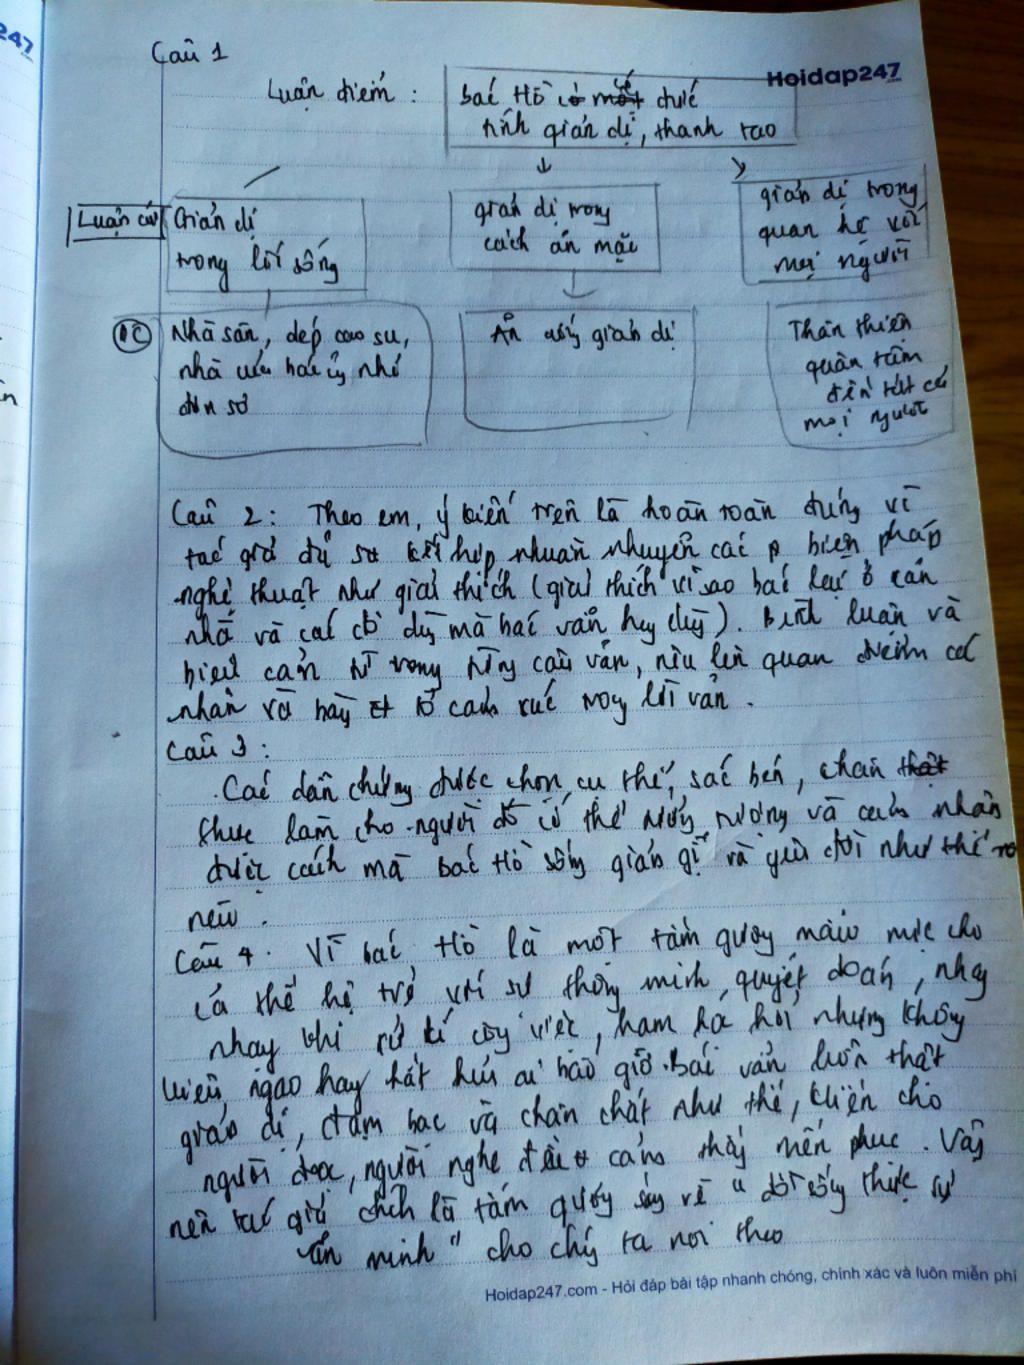 247
Câu 1
Hoidap247
Luận điểm : bác Hồ có một đức
tính giản dị, thanh tao
Luận cứ
Giản dị
trong lối sống
giản dị trong
cách ăn mặc
giản dị trong
quan hệ với
mọi người
DC
Nhà sàn, dép cao su,
nhà bác ấy nhỏ
đơn sơ
Ăn uống giản dị
Thân thiện
quan tâm
đến tất cả
mọi người
Câu 2: Theo em, ý kiến trên là hoàn toàn đúng vì
tác giả đã sự kết hợp nhuần nhuyễn các p biện pháp
nghệ thuật như giải thích (giải thích vì sao bác lại ở căn
nhà và cái cũ mà bác vẫn hay dùng). Bình luận và
biểu cảm từ trong từng câu văn, nêu lên quan điểm cá
nhân và bày tỏ cảm xúc trong lời văn.
Câu 3 :
Các dẫn chứng được chọn cụ thể, sắc bén, chân thật
thực làm cho người đó có thể tưởng tượng và cảm nhận
được cách mà bác Hồ sống giản gị và yêu đời như thế
Câu 4. Vì bác Hồ là một tấm gương mẫu mực cho
cả thế hệ trẻ với sự thông minh, quyết đoán, nhạy
nhạy khi xử lí công việc, ham học hỏi nhưng không
kiêu ngạo hay hắt hủi ai bao giờ. Bác vẫn luôn thật
giản dị, đạm bạc và chân chất như thế, khiến cho
người đọc, người nghe đều cảm thấy mến phục. Vậy
nên tác giả chính là tấm gương sáng về " đời sống thực sự
văn minh" cho chúng ta noi theo
Hoidap247.com - Hỏi đáp bài tập nhanh chóng, chính xác và luôn miễn phí